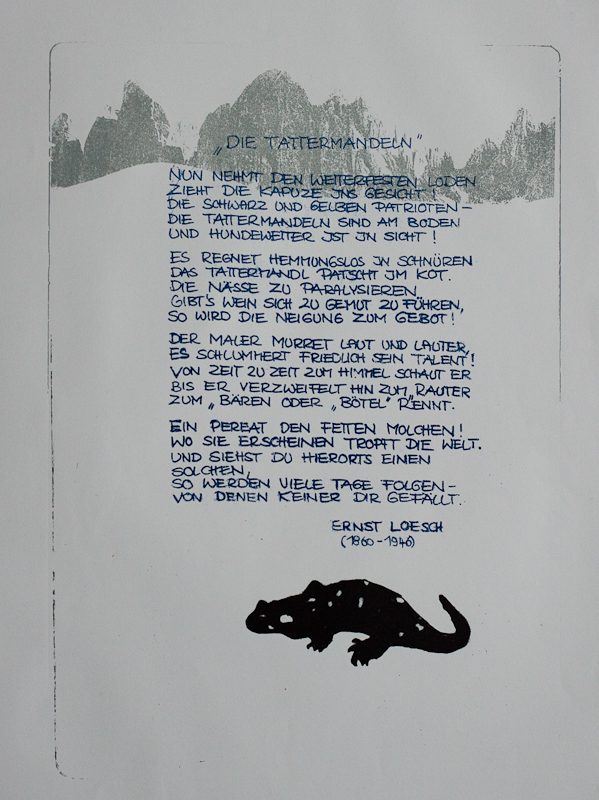 „DIE TATTERMANDELN"
NUN NEHMT DEN WETTERFESTEN LODEN
ZIEHT DIE KAPUZE INS GESICHT!
DIE SCHWARZ UND GELBEN PATRIOTEN –
DIE TATTERMANDELN SIND AM BODEN
UND HUNDEWETTER IST IN SICHT!
ES REGNET HEMMUNGSLOS IN SCHNÜREN
DAS TATTERMANDL PATSCHT IM KOT.
DIE NÄSSE ZU PARALYSIEREN
GIBT'S WEIN SICH ZU GEMUT ZU FÜHREN,
SO WIRD DIE NEIGUNG ZUM GEBOT!
DER MALER MURRET LAUT UND LAUTER,
ES SCHLUMMERT FRIEDLICH SEIN TALENT!
VON ZEIT ZU ZEIT ZUM HIMMEL SCHAUT ER
BIS ER VERZWEIFELT HIN ZUM „RAUTER
ZUM „BÄREN ODER „BÖTEL" RENNT.
EIN PEREAT DEN FETTEN MOLCHEN!
WO SIE ERSCHEINEN TROPFT DIE WELT.
UND SIEHST DU HIERORTS EINEN
SOLCHEN,
SO WERDEN VIELE TAGE FOLGEN –
VON DENEN KEINER DIR GEFÄLLT.
ERNST LOESCH
(1860 – 1946)